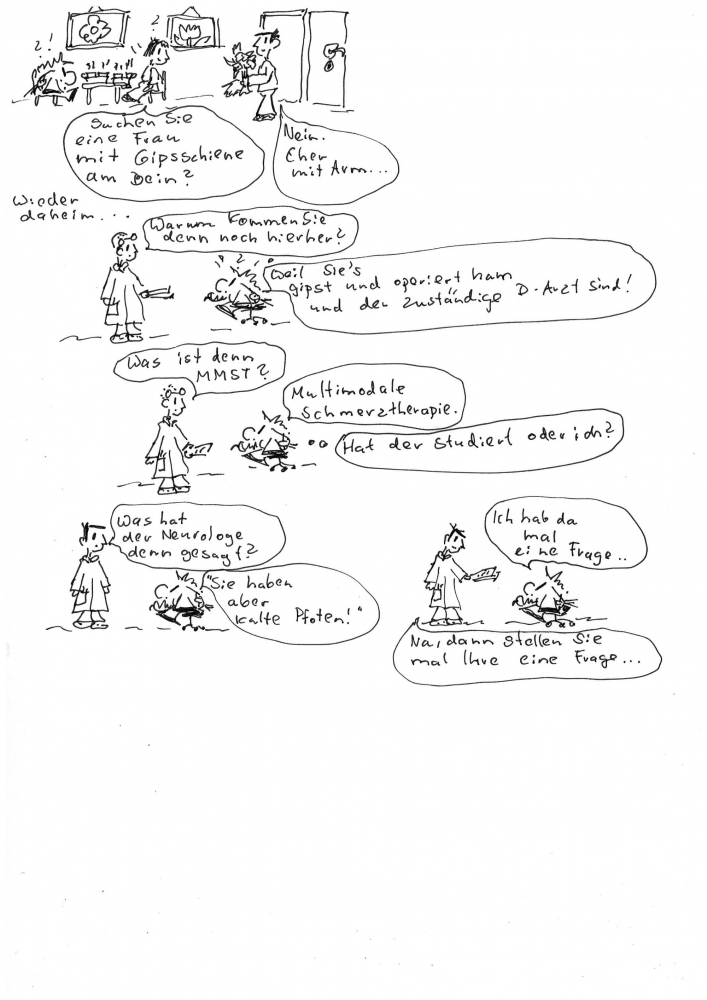 ? !
?
Suchen Sie
eine Frau
mit Gipsschiene
am Bein?
Nein.
Eher
mit Arm...
Wieder
daheim...
Warum kommen Sie
denn noch hierher?
?
Weil Sie's
gipst und operiert ham
und der zuständige D-Arzt sind!
Was ist denn
MMST?
Multimodale
Schmerztherapie.
Hat der studiert oder ich?
Was hat
der Neurologe
denn gesagt?
"Sie haben
aber
kalte Pfoten!"
Ich hab da
mal
eine Frage..
Na, dann stellen Sie
mal Ihre eine Frage...